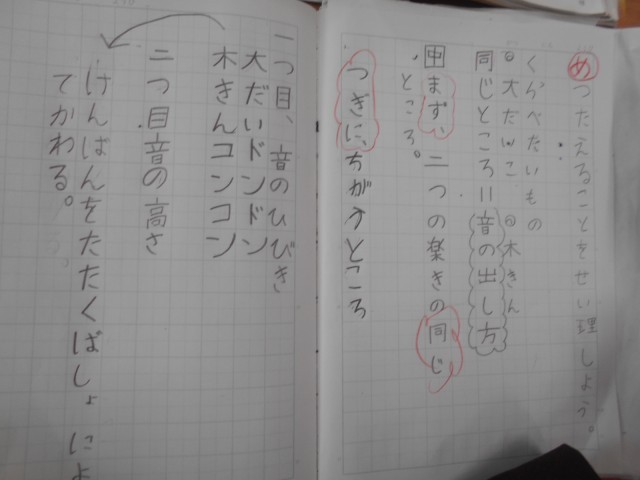 め つたえることをせい理しよう。
くらべたいもの
◎大だいこ ◎木きん
同じところ＝音の出し方
中 まず、二つの楽きの同じ
ところ。
つぎに、ちがうところ
一つ目、音のひびき
大だいドンドン
木きんコンコン
二つ目音の高さ
けんばんをたたくばしょによ
てかわる。